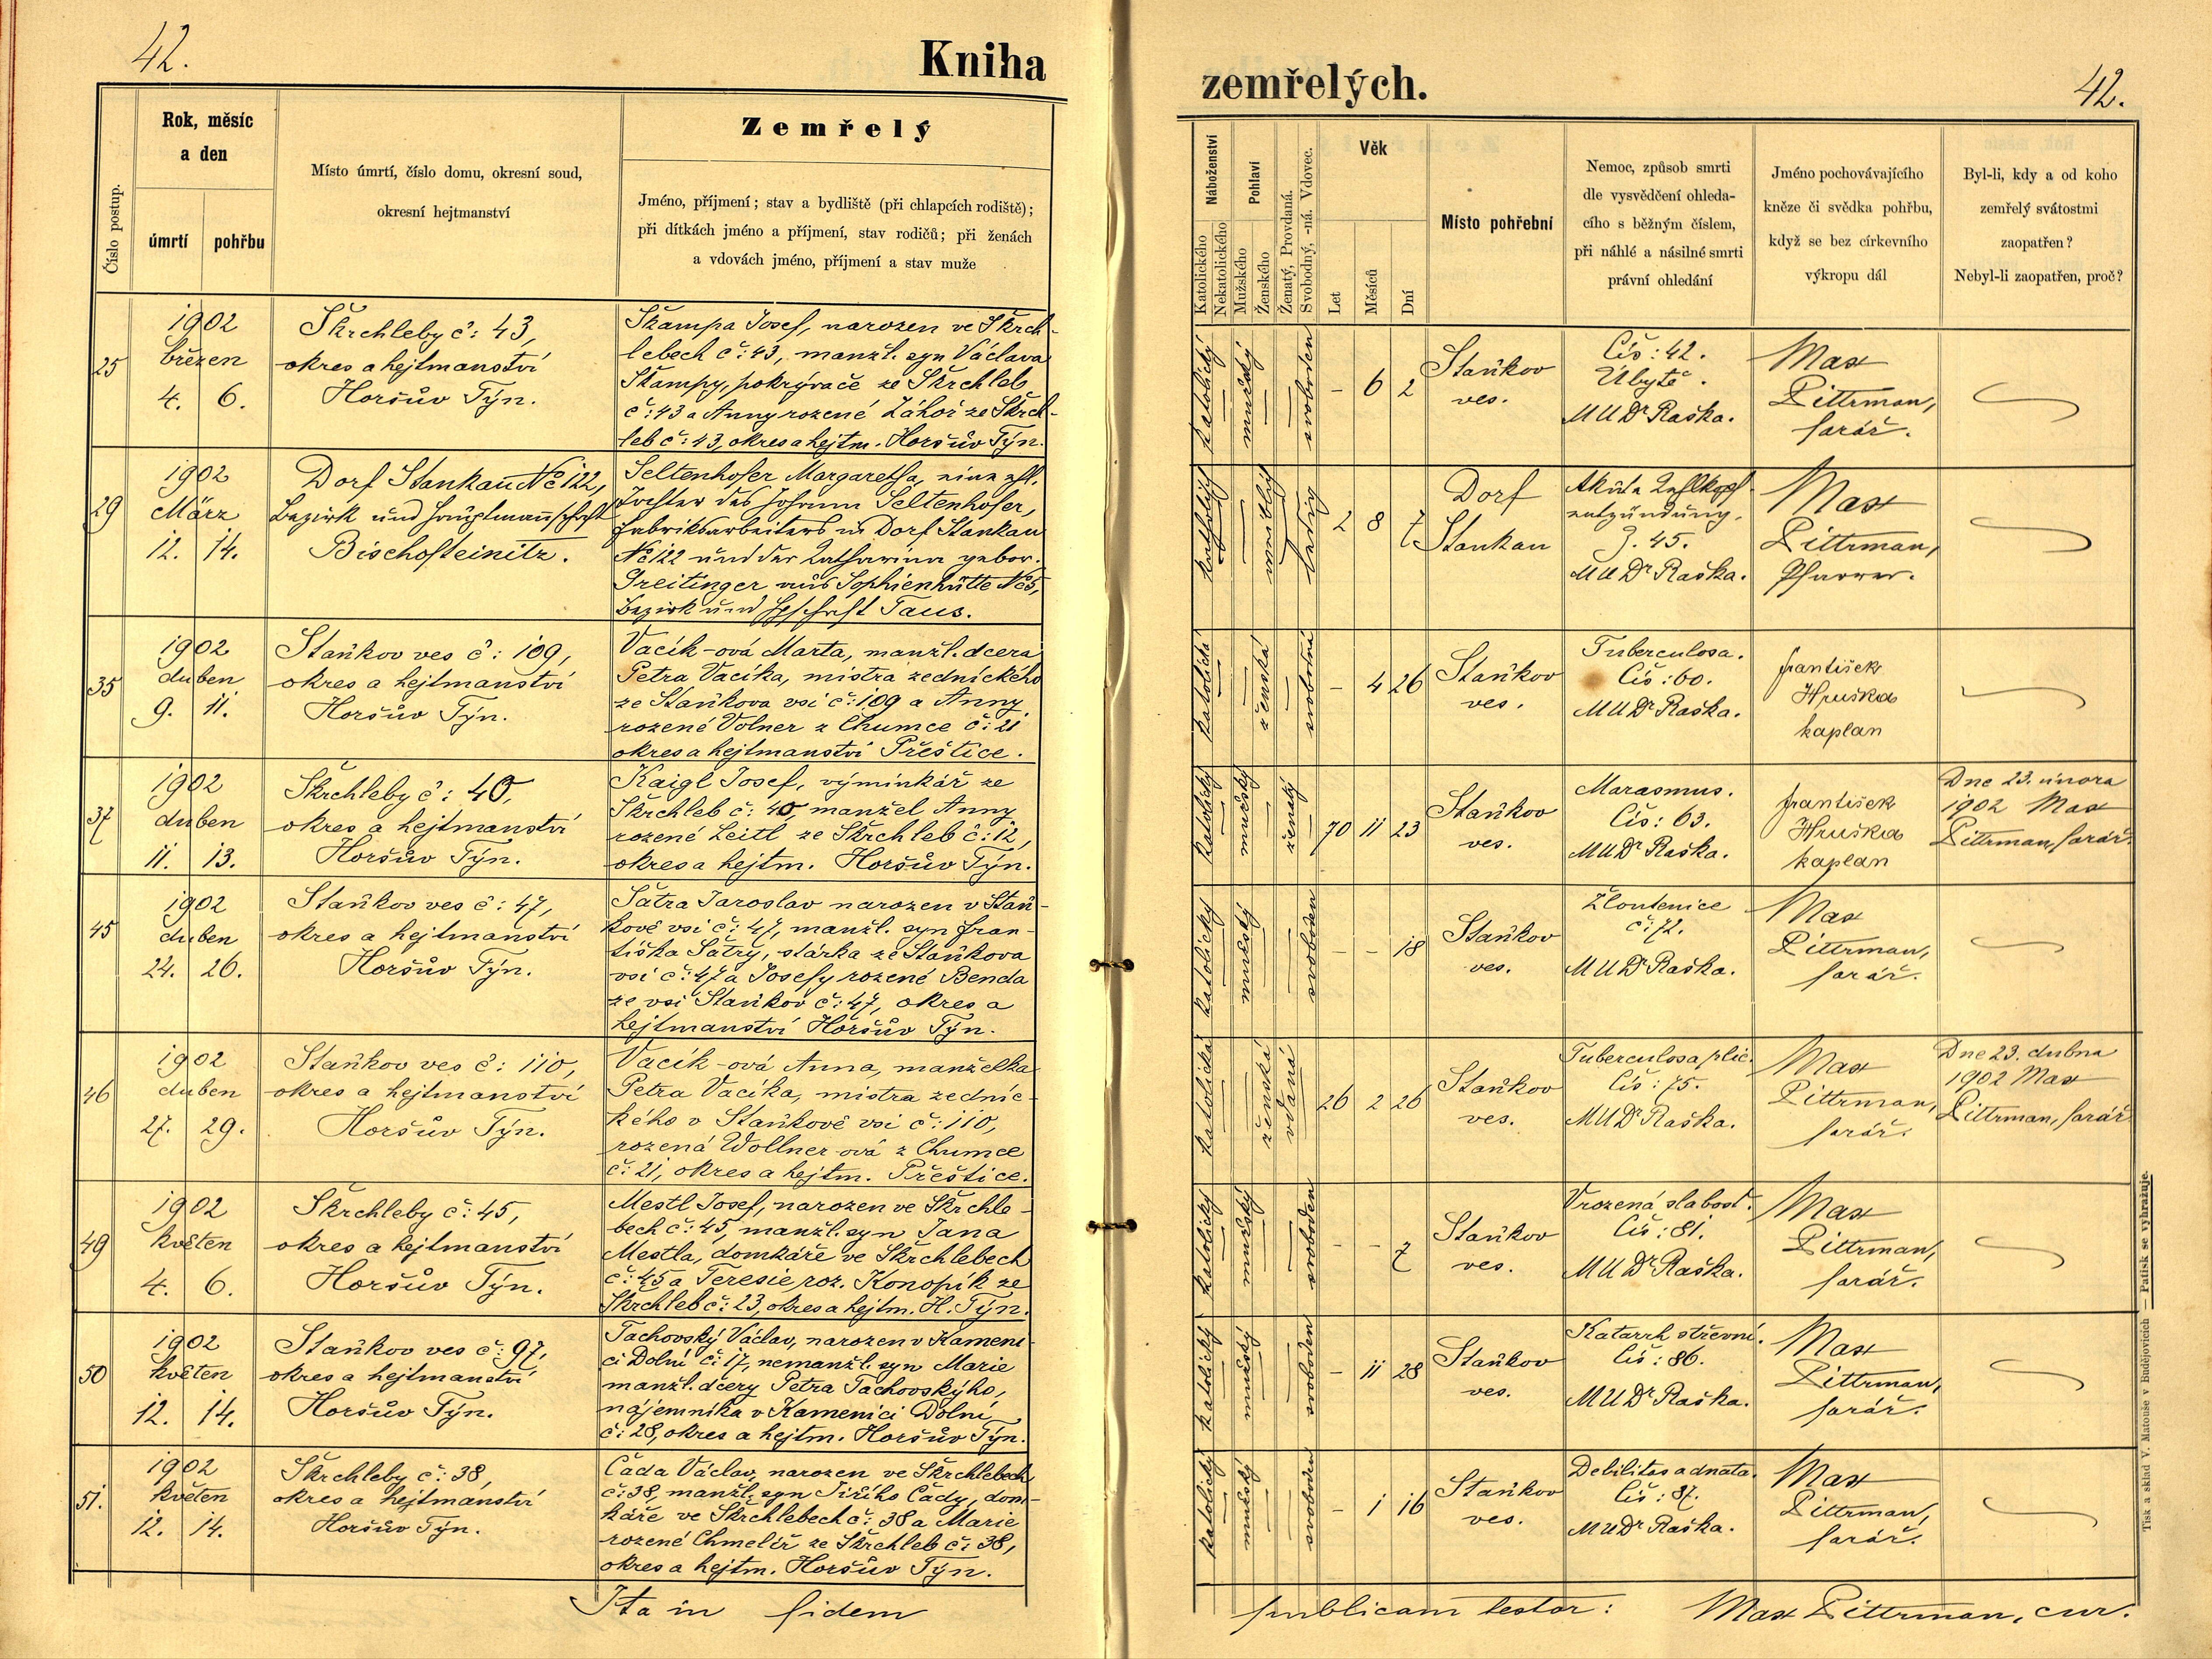 42.
Kniha
Číslo postup.
Rok, měsíc
a den
úmrtí
pohřbu
Místo úmrtí, číslo domu, okresní soud,
okresní hejtmanství
Zemřelý
Jméno, příjmení; stav a bydliště (při chlapcích rodiště);
při dítkách jméno a příjmení, stav rodičů; při ženách
a vdovách jméno, příjmení a stav muže
25
1902
březen
4. 6.
Škrchleby č: 43,
okres a hejtmanství
Horšův Týn.
Škampa Josef, narozen ve Škrch-
lebech č: 43, manžl. syn Václava
Škampy, pokrývače ze Škrchleb
č: 43 a Anny rozené Záhoř ze Škrch-
leb č: 43, okres a hejtm. Horšův Týn.
29
1902
März
12. 14.
Dorf Stankau No 122,
Bezirk und Hauptmannschaft
Bischofteinitz.
Seltenhofer Margaretha, eine ehl.
Tochter des Johann Seltenhofer,
Fabriksarbeiters in Dorf Stankau
No 122 und der Katharina gebor.
Greitinger aus Sophienhütte No 5,
Bezirk und Hptschft Taus.
35
1902
duben
9. 11.
Staňkov ves č: 109,
okres a hejtmanství
Horšův Týn.
Vacík-ová Marta, manžl. dcera
Petra Vacíka, mistra zednického
ze Staňkova vsi č: 109 a Anny
rozené Volner z Chumce č: 21
okres a hejtmanství Přeštice.
37
1902
duben
11. 13.
Škrchleby č: 40,
okres a hejtmanství
Horšův Týn.
Kaigl Josef, výminkář ze
Škrchleb č: 40, manžel Anny
rozené Leitl ze Škrchleb č: 12,
okres a hejtm. Horšův Týn.
45
1902
duben
24. 26.
Staňkov ves č: 47,
okres a hejtmanství
Horšův Týn.
Šatra Jaroslav narozen v Staň-
kově vsi č: 47, manžl. syn Fran-
tiška Šatry, stárka ze Staňkova
vsi č: 47 a Josefy rozené Benda
ze vsi Staňkov č: 47, okres a
hejtmanství Horšův Týn.
46
1902
duben
27. 29.
Staňkov ves č: 110,
okres a hejtmanství
Horšův Týn.
Vacík-ová Anna, manželka
Petra Vacíka, mistra zednic-
kého v Staňkově vsi č: 110,
rozená Wollner-ová z Chumce
č: 21, okres a hejtm. Přeštice.
49
1902
květen
4. 6.
Škrchleby č: 45,
okres a hejtmanství
Horšův Týn.
Mestl Josef, narozen ve Škrchle-
bech č: 45, manžl. syn Jana
Mestla, domkáře ve Škrchlebech
č: 45 a Teresie roz. Konopík ze
Škrchleb č: 23, okres a hejtm. H. Týn.
50
1902
květen
12. 14.
Staňkov ves č: 97,
okres a hejtmanství
Horšův Týn.
Tachovský Václav, narozen v Kameni-
ci Dolní č: 17, nemanžl. syn Marie
manžl. dcery Petra Tachovskýho,
nájemníka v Kamenici Dolní
č: 28, okres a hejtm. Horšův Týn.
51.
1902
květen
12. 14.
Škrchleby č: 38,
okres a hejtmanství
Horšův Týn.
Čada Václav, narozen ve Škrchlebech
č: 38, manžl. syn Jiřího Čady, dom-
káře ve Škrchlebech č: 38 a Marie
rozené Chmelíř ze Škrchleb č: 38,
okres a hejtm. Horšův Týn.
Ita in fidem
zemřelých.
42.
Náboženství
Katolického
Nekatolického
Pohlaví
Mužského
Ženského
Ženatý, Provdaná.
Svobodný, -ná. Vdovec.
Věk
Let
Měsíců
Dní
Místo pohřební
Nemoc, způsob smrti
dle vysvědčení ohleda-
cího s běžným číslem,
při náhlé a násilné smrti
právní ohledání
Jméno pochovávajícího
kněze či svědka pohřbu,
když se bez církevního
výkropu dál
Byl-li, kdy a od koho
zemřelý svátostmi
zaopatřen?
Nebyl-li zaopatřen, proč?
katolický
mužský
svoboden
– 6 2
Staňkov
ves.
Čís: 42.
Úbytě.
MUDr Raška.
Max
Pittrman,
farář.
katholisch
weiblich
ledig
2 8 7
Dorf
Stankau
Akute Kehlkopf-
entzündung.
Z. 45.
MUDr Raška.
Max
Pittrman,
Pfarrer.
katolická
ženská
svobodná
– 4 26
Staňkov
ves.
Tuberculosa.
Čís: 60.
MUDr Raška.
František
Hruška
kaplan
katolický
mužský
ženatý
70 11 23
Staňkov
ves.
Marasmus.
Čís: 63.
MUDr Raška.
František
Hruška
kaplan
Dne 23. února
1902 Max
Pittrman, farář.
katolický
mužský
svoboden
– – 18
Staňkov
ves.
Žloutenice
č: 72.
MUDr Raška.
Max
Pittrman,
farář.
katolická
ženská
vdaná
26 2 26
Staňkov
ves.
Tuberculosa plic.
Čís: 75.
MUDr Raška.
Max
Pittrman,
farář.
Dne 23. dubna
1902 Max
Pittrman, farář.
katolický
mužský
svoboden
– – 7
Staňkov
ves.
Vrozená slabost.
Čís: 81.
MUDr Raška.
Max
Pittrman,
farář.
katolický
mužský
svoboden
– 11 28
Staňkov
ves.
Katarrh střevní.
Čís: 86.
MUDr Raška.
Max
Pittrman,
farář.
katolický
mužský
svoboden
– 1 16
Staňkov
ves.
Debilitas adnata.
Čís: 87.
MUDr Raška.
Max
Pittrman,
farář.
publicam testor: Max Pittrman, cur.
Tisk a sklad V. Matouše v Budějovicích — Patisk se vyhražuje.